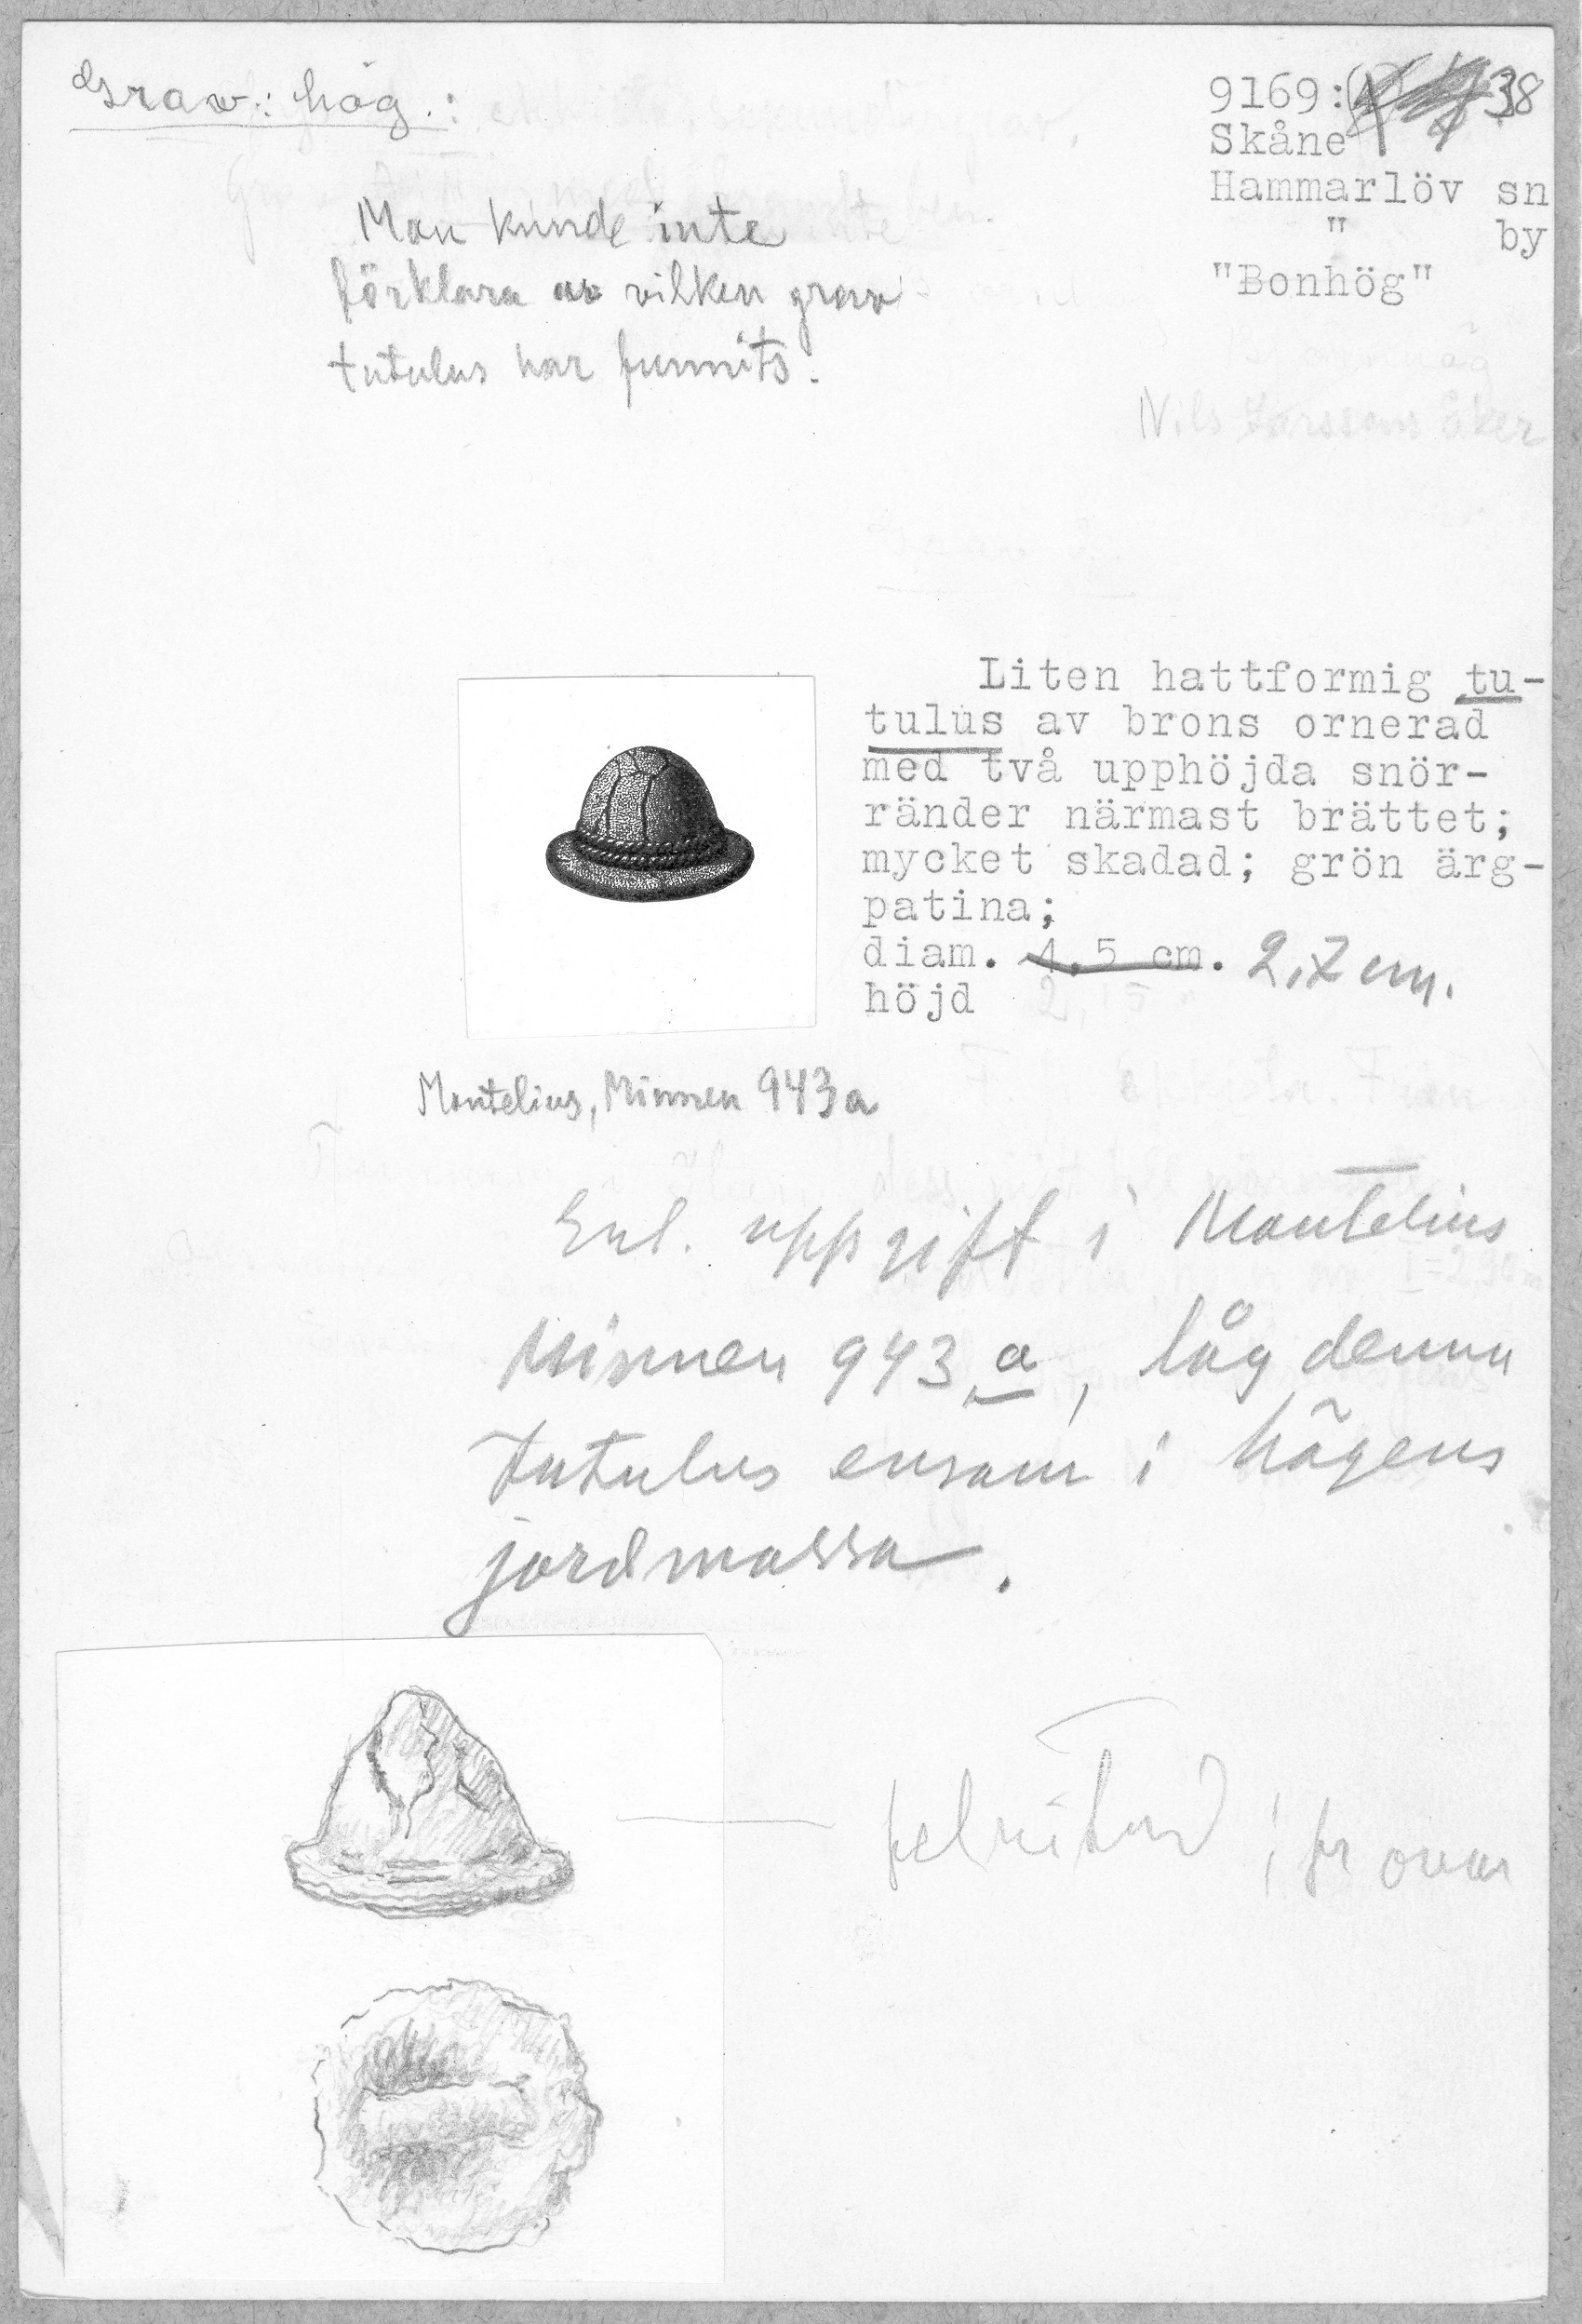 Grav: hög.:
9169: 38
Skåne
Hammarlöv sn
" by
"Bonhög"
Man kunde inte
förklara av vilken grav
tutulus har funnits.
Nils Larssons åker
Liten hattformig tu-
tulus av brons ornerad
med två upphöjda snör-
ränder närmast brättet;
mycket skadad; grön ärg-
patina;
diam. 4,5 cm. 2,7 cm.
höjd 2,15 "
Montelius, Minnen 943a
Enl. uppgift i Montelius
Minnen 943 a, låg denna
tutulus ensam i högens
jordmassa.
felritad